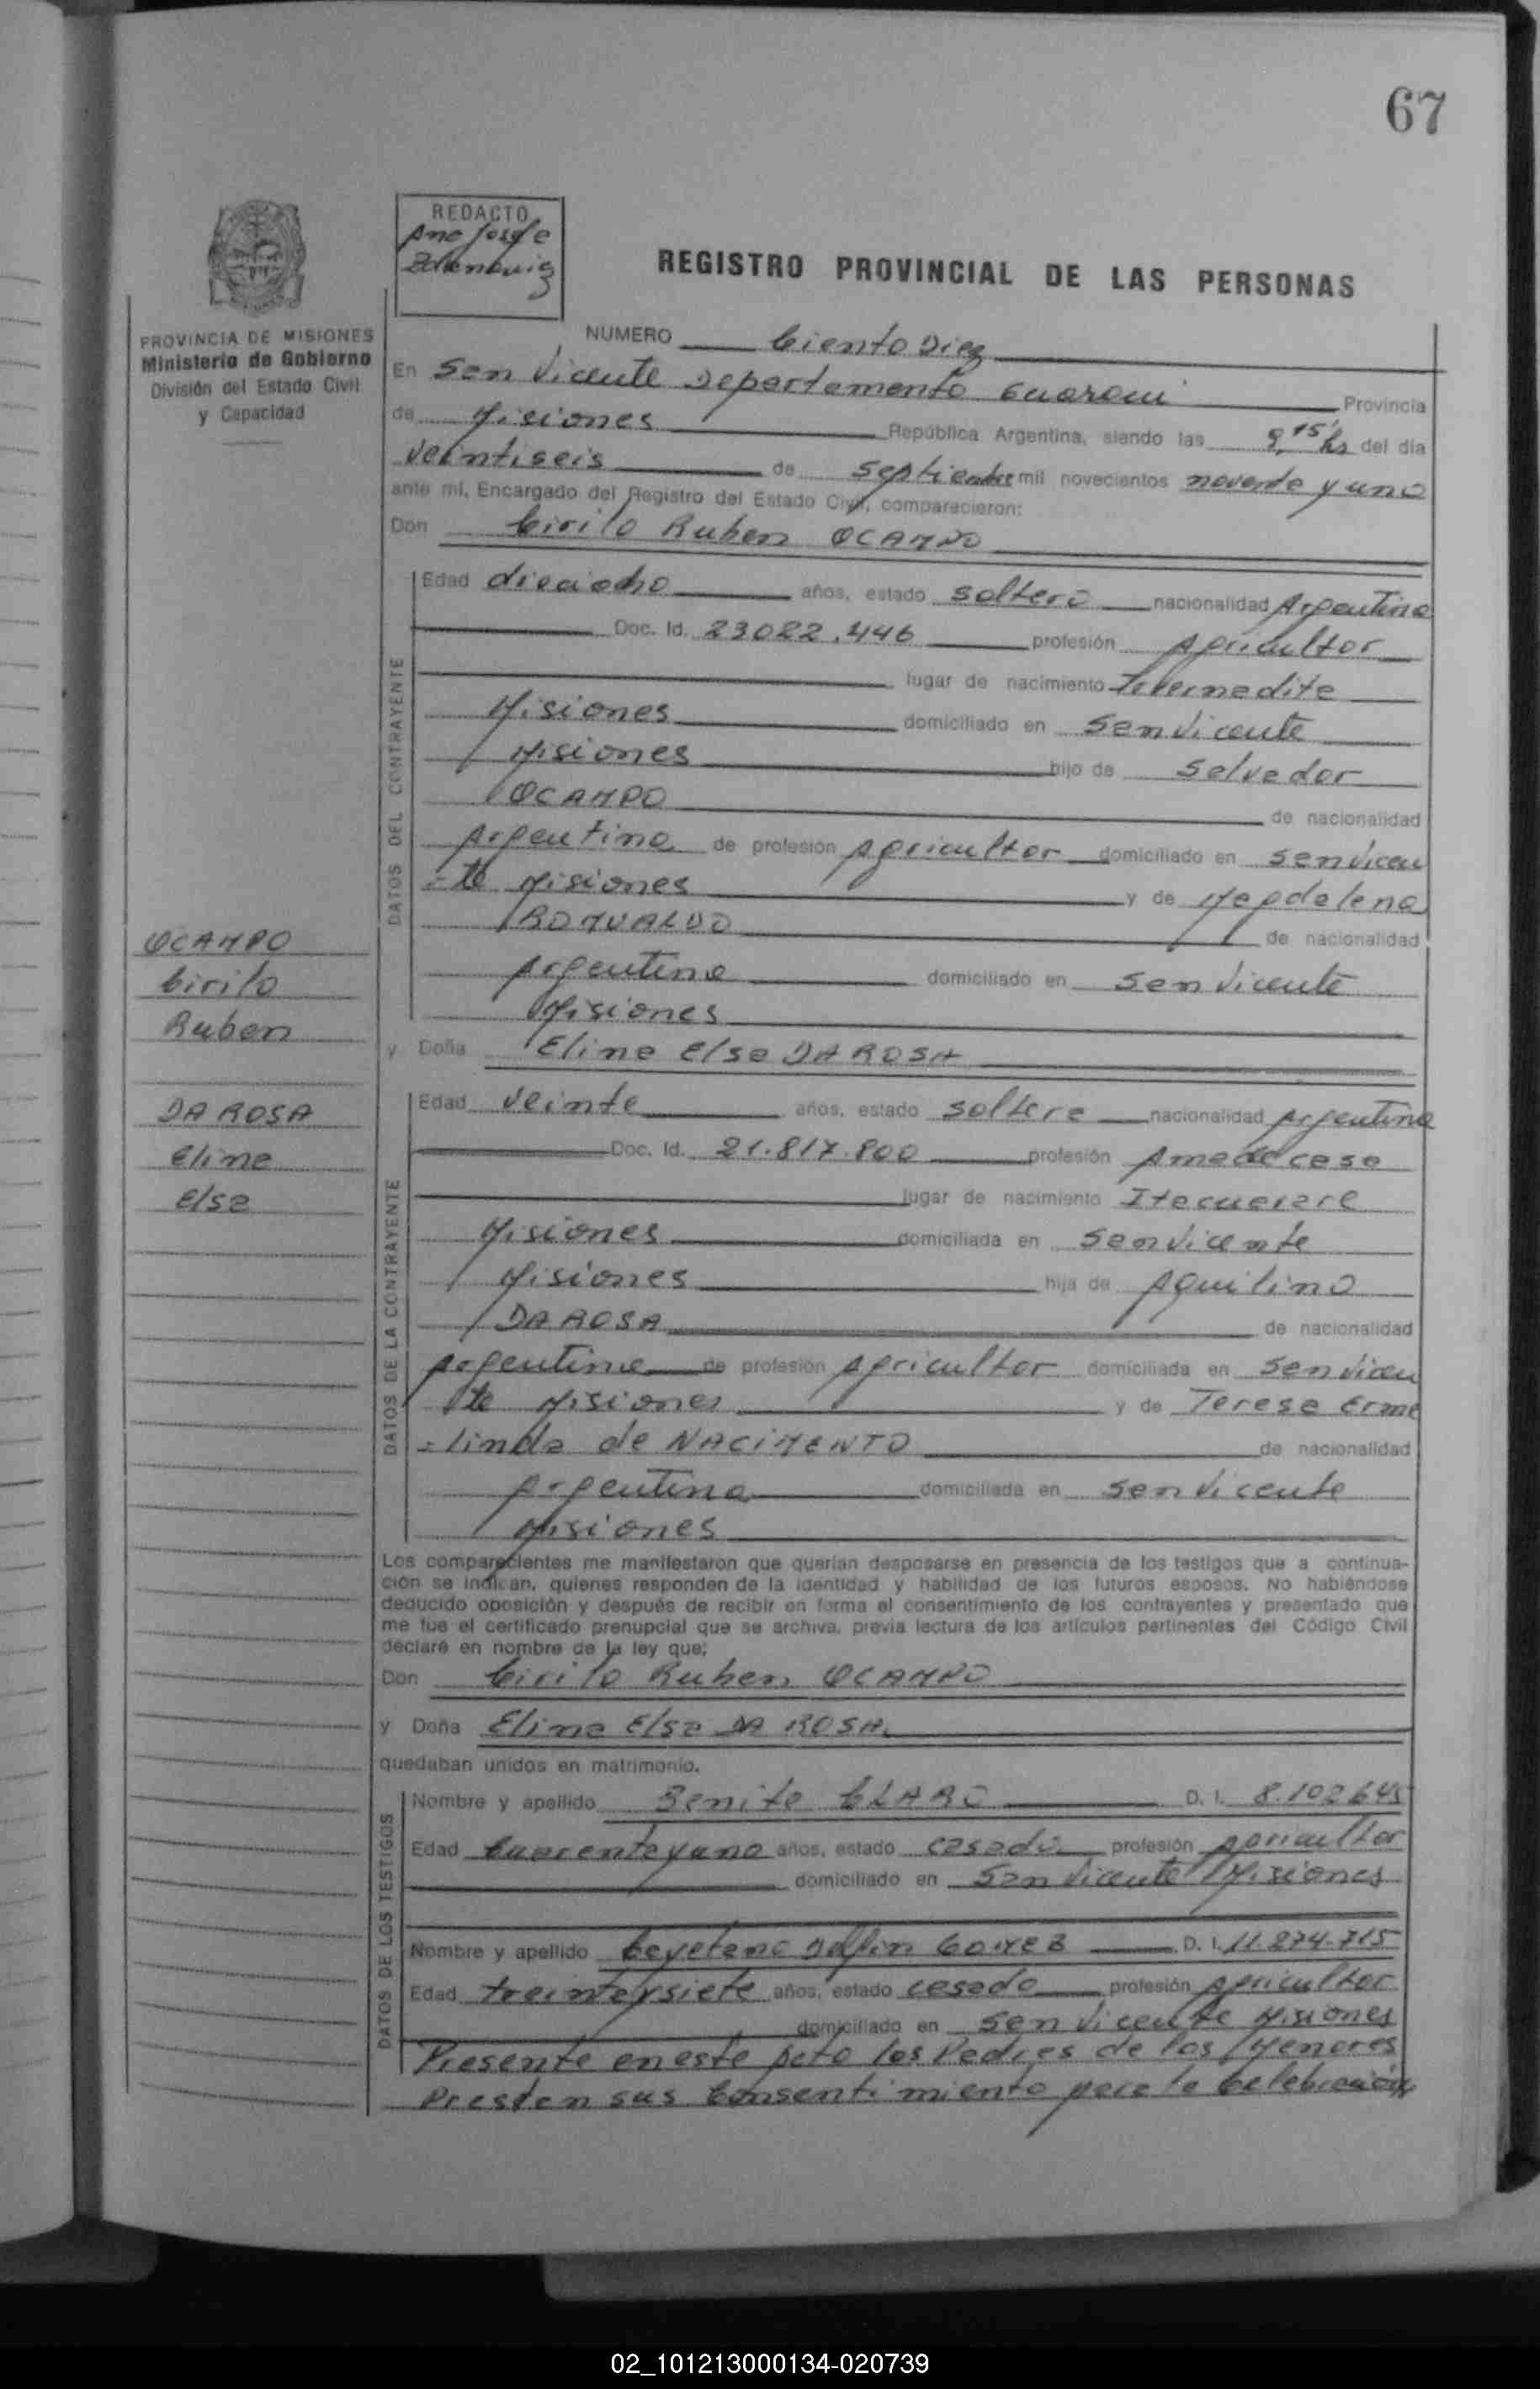 67
REDACTO
Ana Josefa
REGISTRO PROVINCIAL DE LAS PERSONAS
PROVINCIA DE MISIONES
Ministerio de Gobierno
División del Estado Civil
y Capacidad
NUMERO Ciento Diez
En San Vicente Departamento Guarani Provincia
de Misiones República Argentina, siendo las 9,15' hs del día
veintiseis de septiembre mil novecientos noventa y uno
ante mí, Encargado del Registro del Estado Civil, comparecieron:
Don Cirilo Ruben OCAMPO
DATOS DEL CONTRAYENTE
Edad dieciocho años, estado soltero nacionalidad Argentina
Doc. Id. 23022.446 profesión Agricultor
lugar de nacimiento
Misiones domiciliado en San Vicente
Misiones hijo de Salvador
OCAMPO de nacionalidad
Argentina de profesión Agricultor domiciliado en San Vicen
=te Misiones y de Magdalena
ROMUALDO de nacionalidad
Argentina domiciliado en San Vicente
Misiones
OCAMPO
Cirilo
Ruben
DA ROSA
Elina
Elsa
y Doña Elina Elsa DA ROSA
DATOS DE LA CONTRAYENTE
Edad veinte años, estado soltera nacionalidad Argentina
Doc. Id. 21.817.800 profesión Ama de casa
lugar de nacimiento Itacuarare
Misiones domiciliada en San Vicente
Misiones hija de Aquilino
DA ROSA de nacionalidad
Argentina de profesión Agricultor domiciliada en San Vicen
te Misiones y de Teresa Erme
=linda de NACIMENTO de nacionalidad
Argentina domiciliada en San Vicente
Misiones
Los comparecientes me manifestaron que querían desposarse en presencia de los testigos que a continua-
ción se indican, quienes responden de la identidad y habilidad de los futuros esposos. No habiéndose
deducido oposición y después de recibir en forma el consentimiento de los contrayentes y presentado que
me fue el certificado prenupcial que se archiva, previa lectura de los artículos pertinentes del Código Civil
declaré en nombre de la ley que;
Don Cirilo Ruben OCAMPO
y Doña Elina Elsa DA ROSA
quedaban unidos en matrimonio.
DATOS DE LOS TESTIGOS
Nombre y apellido Benito CLARO D. I. 8.102645
Edad Cuarenta y uno años, estado casado profesión agricultor
domiciliado en San Vicente Misiones
Nombre y apellido Cayetano Delfin GOMEZ D. I. 11.274.715
Edad treinta y siete años, estado casado profesión Agricultor
domiciliado en San Vicente Misiones
Presente en este Acto los Padres de los Menores
Prestan sus Consentimiento para la Celebración
02_101213000134-020739